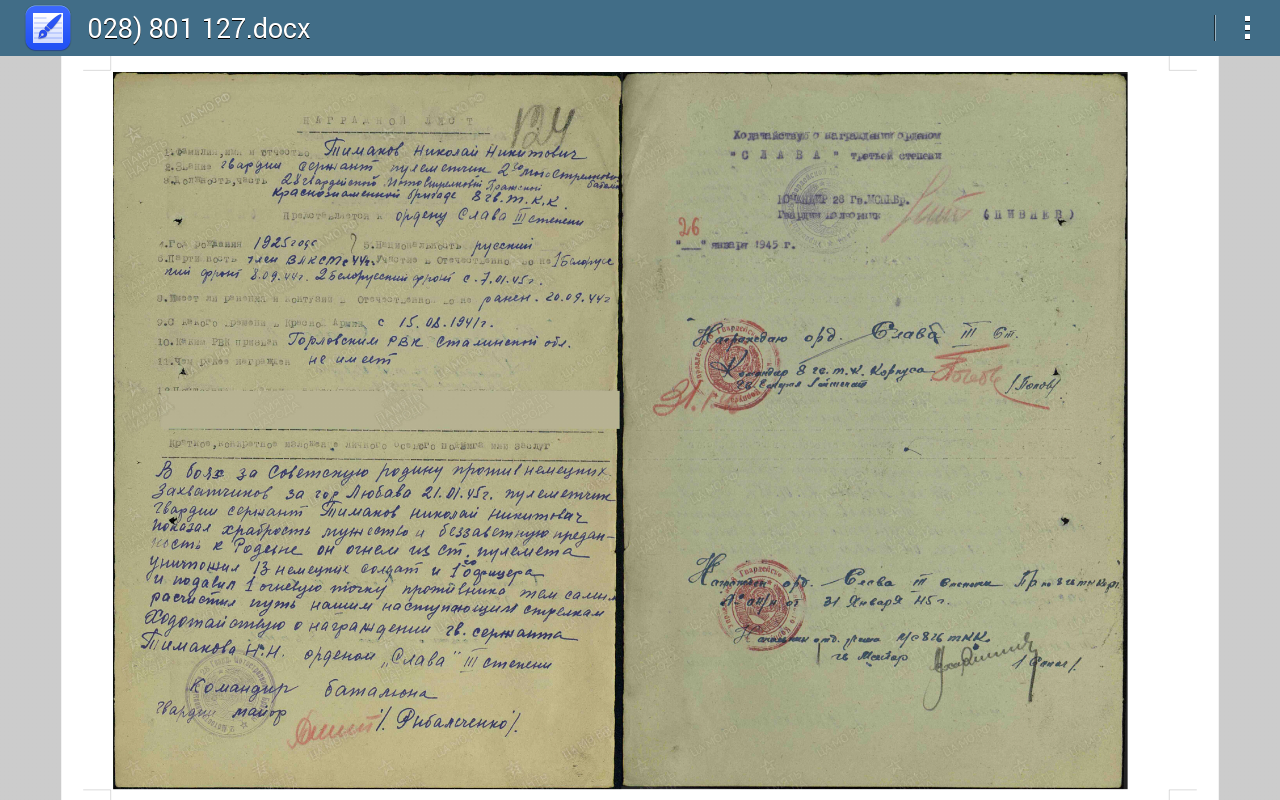 028) 801 127.docx
НАГРАДНОЙ ЛИСТ
124
1.Фамилия,имя и отчество Тимаков Николай Никитович
2.Звание гвардии сержант пулеметчик 2го мотострелкового
3.Должность,часть 28 гвардейской Мотострелковой батальона
Краснознаменной бригаде 8 гв.т.к.к.
Представляется к ордену Слава III степени
4.Год рождения 1925 года 5.Национальность русский
6.Партийность член ВЛКСМ с 44г. Участие в Отечественной войне 1 Белорус
кий фронт 8.09.44г. 2 Белорусский фронт с 7.01.45г.
8.Имеет ли ранения и контузии в Отечественной войне ранен. 20.09.44г
9.С какого времени в Красной Армии с 15.08.1941г.
10.Каким РВК призван Горловским РВК Сталинской обл.
11.Чем ранее награжден не имеет
Краткое,конкретное изложение личного боевого подвига или заслуг
В боях за Советскую родину против немецких
Захватчиков за гор Любава 21.01.45г. пулеметчик
гвардии сержант Тимаков Николай Никитович
показал храбрость мужество и беззаветную предан-
ность к Родене он огнем из ст. пулемета
уничтожил 13 немецких солдат и 1го офицера
и подавил 1 огневую точку противника тем самым
расчистил путь нашим наступающим стрелкам
Ходотайствую о награждении гв. сержанта
Тимакова Н.Н. орденом „Слава" III степени
Командир баталиона
гвардии майор /Рибалченко/.
Ходатайствую о награждении орденом
"СЛАВА" третьей степени
КОМАНДИР 28 Гв.МСПКБр.
Гвардии полковник (ПИВНЕВ)
26
"___" января 1945 г.
Награждаю орд. Слава III Ст.
Командир 8 гв.т.к. Корпуса
гв Генерал Лейтенант /Попов/
31.1
орд. Слава III Степени Пр по 8 гв тк Корп.
от 31 Января 45г.
гв Майор